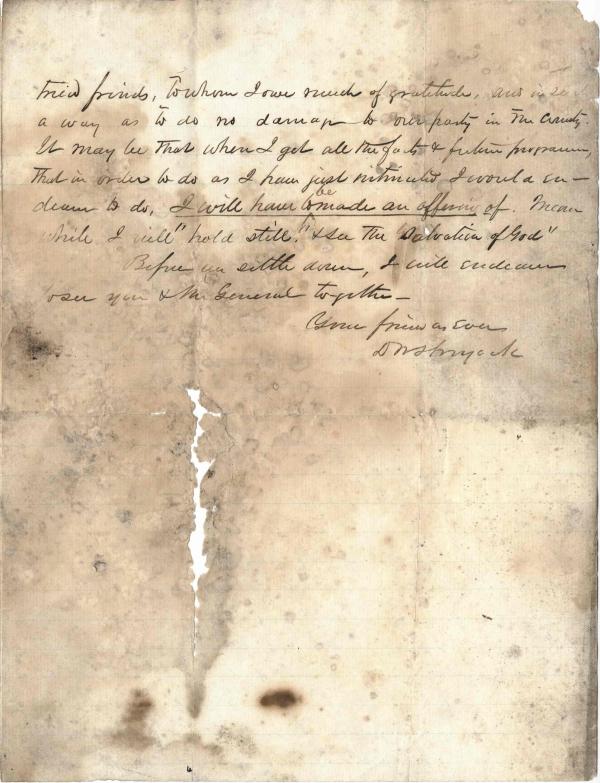 tried friends, to whom I owe much of gratitude, and in so
a way as to do no damage to our party in the County.
It may be that when I get all the facts & future programme,
that in order to do as I have just intimated I would en-
deavor to do, I will have to be made an offering of. Mean
while I will "hold still." & see the "Salvation of God"
Before we settle down, I will endeavor
to see you & the General together –
Your friend as ever